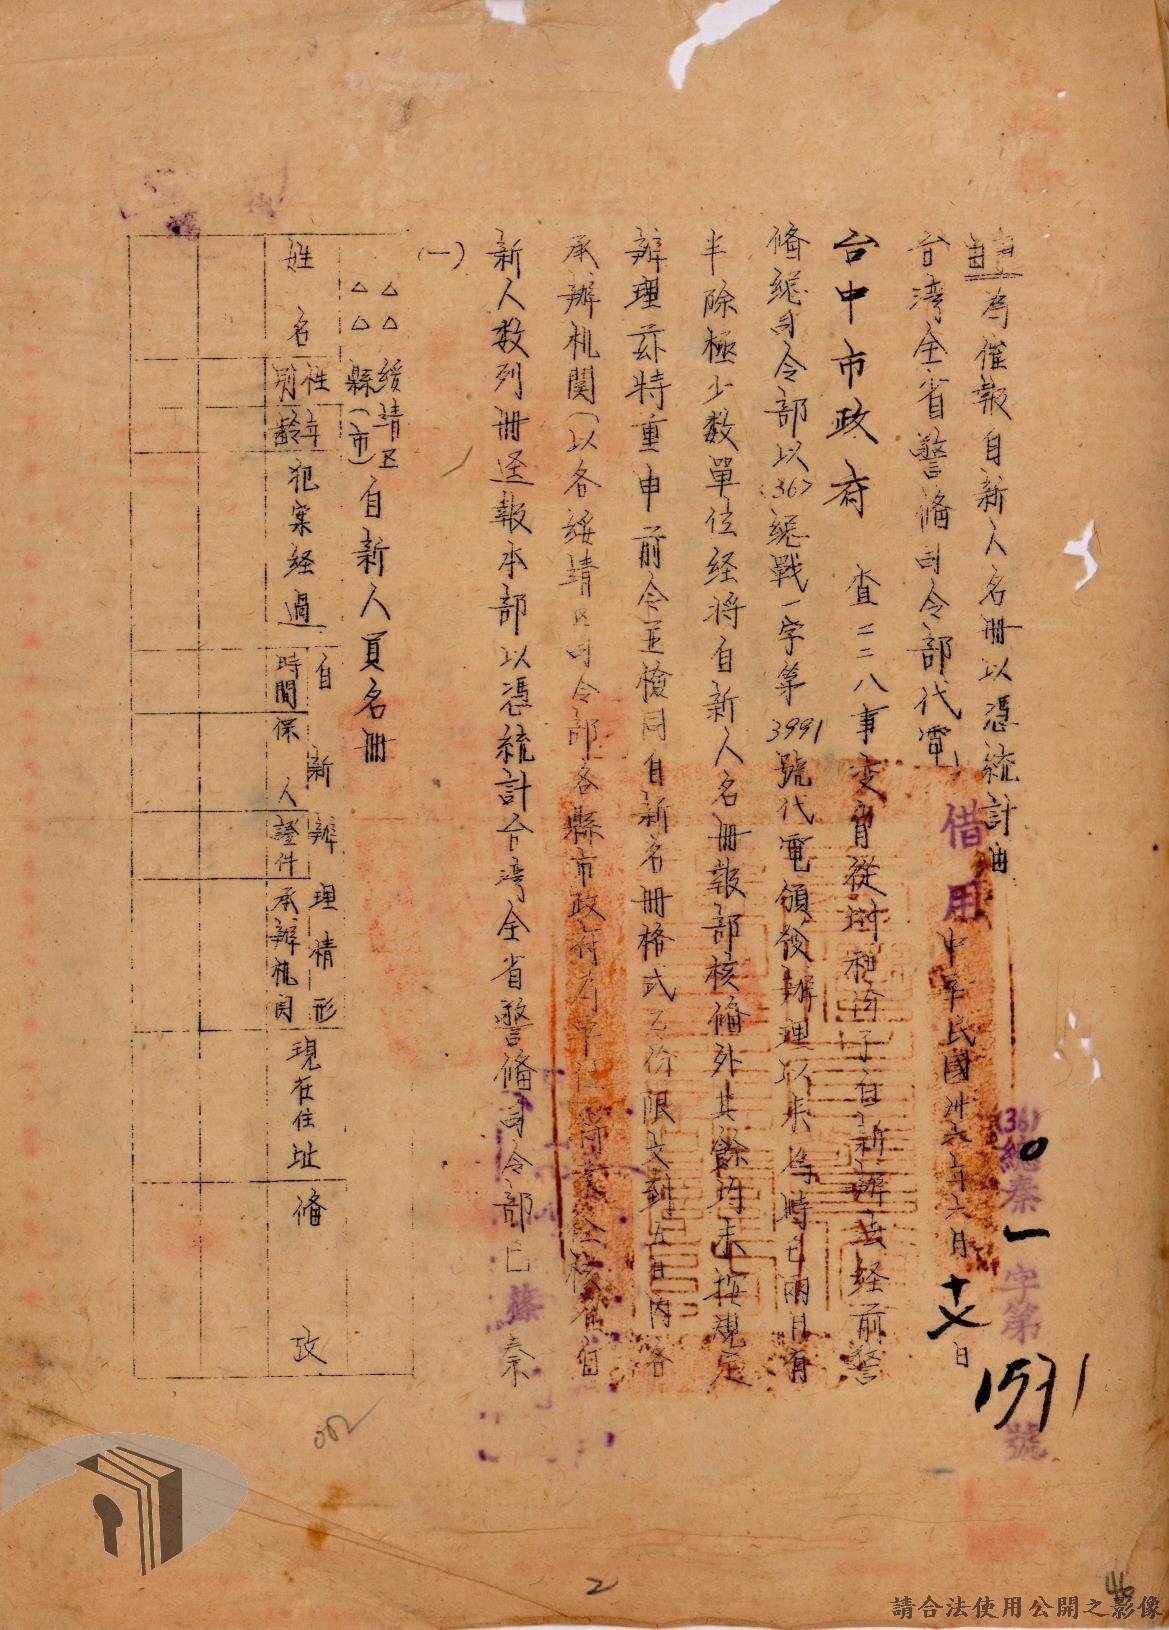 事由為催報自新人名冊以憑統計由
台湾全省警俻司令部代電
借用
中華民國卅六年六月十八日
(36)總秦一字第1571號
台中市政府 查二二八事变脅從附和份子自新辦法経前警
俻總司令部以(36)總戰一字第3991號代電頒發辦理以来為時已兩月有
半除極少数單位経将自新人名冊報部核俻外其餘均未按規定
辦理茲特重申前令並檢同自新名冊格式乙份限文到五日内各
承辦机関(以各綏靖区司令部各縣市政府為單位
新人数列冊逕報本部以憑統計台湾全省警俻司令部巳 秦
(一)
△△綏靖区
△△縣(市)自新人員名冊
姓名
性别
年齡
犯案経過
自新辦理情形
時間
保人
證件
承辦机関
現在住址
俻攷
062
2
46
請合法使用公開之影像